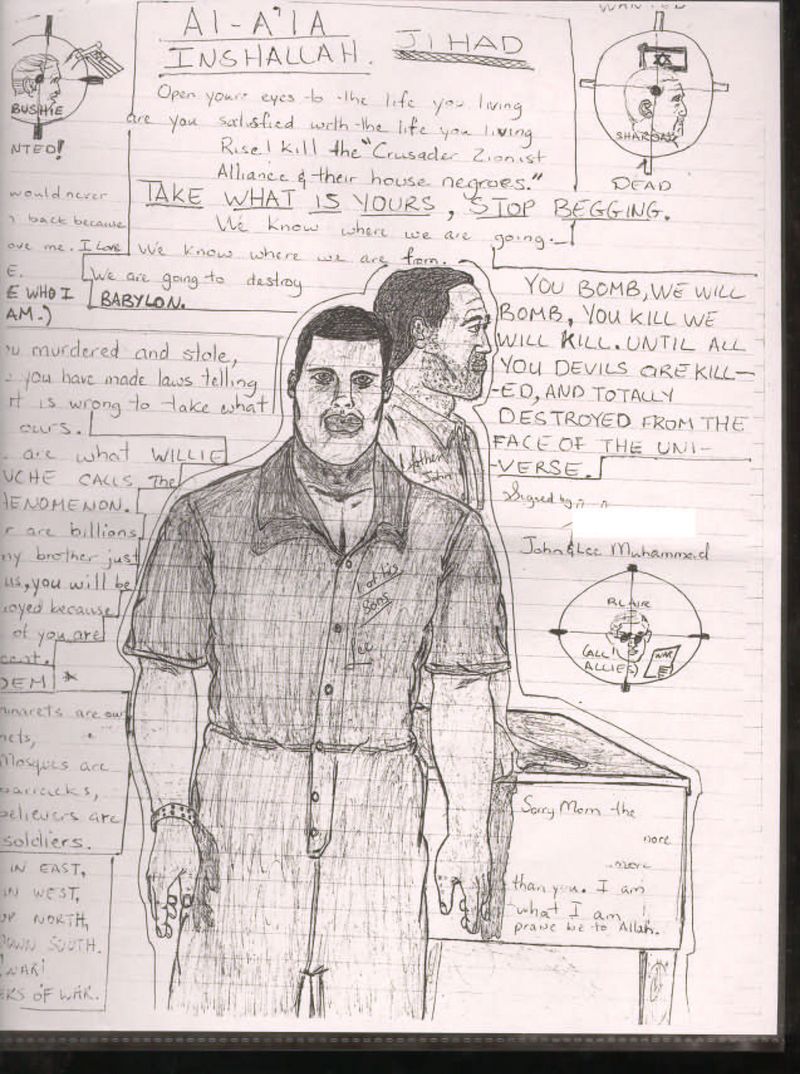 WANTED
AI-A'IA
INSHALLAH. JIHAD
BUSHIE
NTED!
SHARON
DEAD
Open your eyes to the life you living
are you satisfied with the life you living
Rise! kill the "Crusader Zionist
Alliance & their house negroes."
TAKE WHAT IS YOURS, STOP BEGGING.
We know where we are going.
We know where we are from.
We are going to destroy
BABYLON.
would never
back because
ove me. I Love
E.
E WHO I
AM.)
YOU BOMB, WE WILL
BOMB, YOU KILL WE
WILL KILL. UNTIL ALL
YOU DEVILS ARE KILL-
-ED, AND TOTALLY
DESTROYED FROM THE
FACE OF THE UNI-
-VERSE.
Signed by
John & Lee Muhammad
u murdered and stole,
you have made laws telling
it is wrong to take what
ours.
are what WILLIE
UCHE CALLS The
HENOMENON.
r are billions
ny brother just
us, you will be
oyed because
of you are
cent.
DEM *
minarets are our
nets,
Mosques are
barracks,
believers are
soldiers.
IN EAST,
IN WEST,
UP NORTH,
DOWN SOUTH.
WAR!
ERS OF WAR.
father
John
1 of his
Sons
Lee
BLAIR
(ALL
ALLIES)
WAR
Sorry Mom the
more
more
than you. I am
what I am
praise be to Allah.